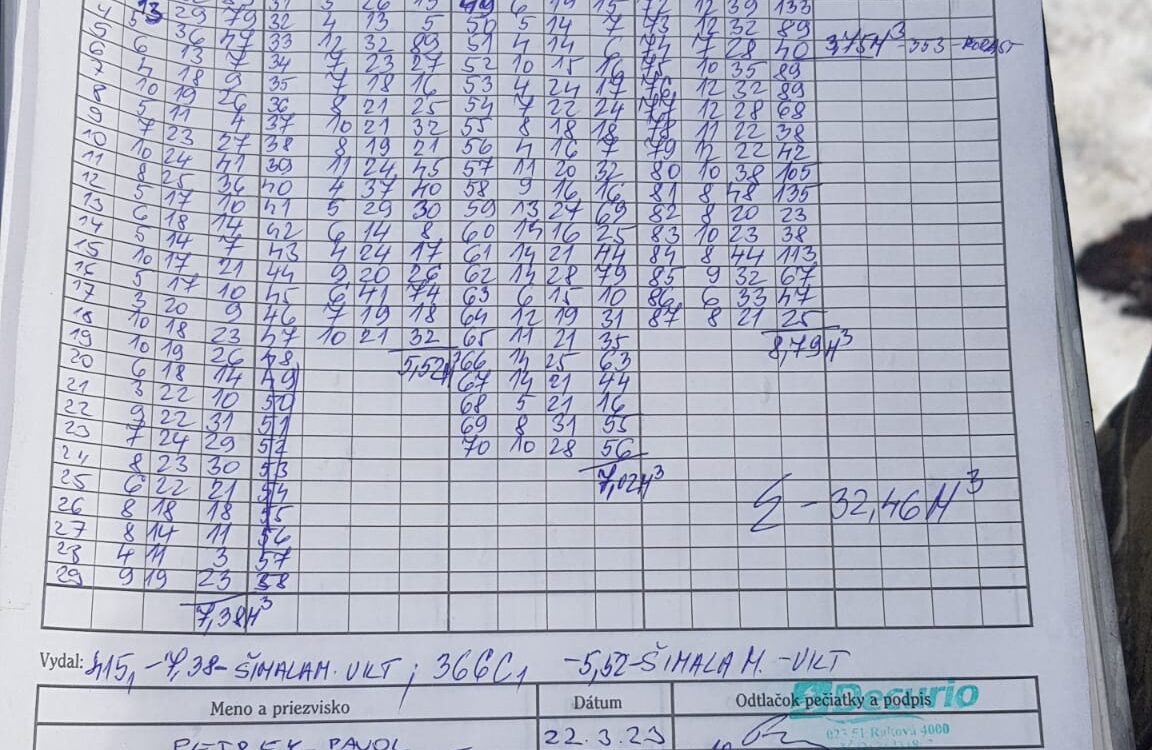 13 29 79 32 4 13 5 50 5 14 7 73 12 32 89
4 5 36 47 33 12 32 89 51 4 14 6 74 7 28 40 3,75M³ -353-
5 6 13 7 34 7 23 27 52 10 15 16 75 10 35 89
6 4 18 9 35 7 18 16 53 4 24 17 76 12 32 89
7 10 19 26 36 8 21 25 54 7 22 24 77 12 28 68
8 5 11 4 37 10 21 32 55 8 18 18 78 11 22 38
9 7 23 27 38 8 19 21 56 4 16 7 79 12 22 42
10 10 24 41 39 11 24 45 57 11 20 32 80 10 38 105
11 8 25 36 40 4 37 40 58 9 16 16 81 8 48 135
12 5 17 10 41 5 29 30 59 13 27 69 82 8 20 23
13 6 18 14 42 6 14 8 60 14 16 25 83 10 23 38
14 5 14 7 43 4 24 17 61 14 21 44 84 8 44 113
15 10 17 21 44 9 20 26 62 14 28 79 85 9 32 67
16 5 17 10 45 6 41 74 63 6 15 10 86 6 33 47
17 3 20 9 46 7 19 18 64 12 19 31 87 8 21 25
18 10 18 23 47 10 21 32 65 11 21 35 8,79M³
19 10 19 26 48 5,52M³ 66 14 25 63
20 6 18 14 49 67 14 21 44
21 3 22 10 50 68 5 21 16
22 9 22 31 51 69 8 31 55
23 7 24 29 52 70 10 28 56
24 8 23 30 53 7,02M³
25 6 22 21 54
26 8 18 18 55
27 8 14 11 56
28 4 11 3 57
29 9 19 23 58
7,38M³
Σ - 32,46M³
Vydal: 415, -7,38-ŠIMALAM. VKT ; 366C1 -5,52-ŠIMALA M. -VKT
Meno a priezvisko Dátum Odtlačok pečiatky a podpis
Decurio
PAVOL 22.3.23 023 51 Raková 4000